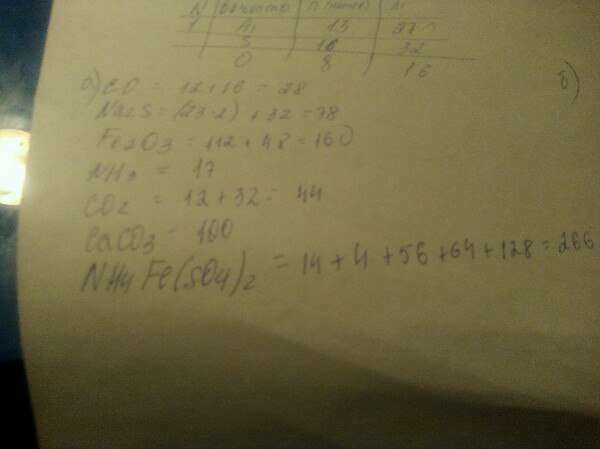 N
1 Al 13 27
S 16 32
O 8 16
а) CO = 12 + 16 = 28
б)
Na2S = (23·2) + 32 = 78
Fe2O3 = 112 + 48 = 160
NH3 = 17
CO2 = 12 + 32 = 44
CaCO3 = 100
NH4Fe(SO4)2 = 14 + 4 + 56 + 64 + 128 = 266